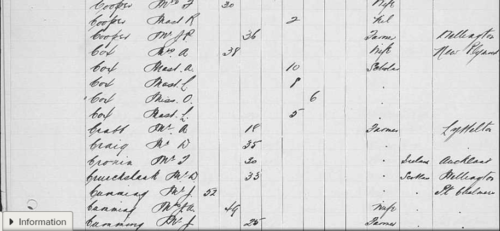 Cooper Mrs F 30 Wife
Cooper Mast R 2 Nil
Cooper Mr J R 36 Farmer Wellington
Cox Mrs A 38 Wife New Plymth
Cox Mast. A. 10 Scholar
Cox Mast. L 8 .
Cox Miss. O. 6 .
Cox Mast. L. 5 .
Crabb Mr. A 18 Farmer Lyttelton
Craig Mr D 35 .
Cronin Mr T 30 . Ireland Auckland
Cruickshank Mr D 33 . Scotland Wellington
Cumming Mr J. 52 . . Pt Chalmers
Cumming Mrs 49 Wife .
Cumming Mr J 25 Farmer .
Information